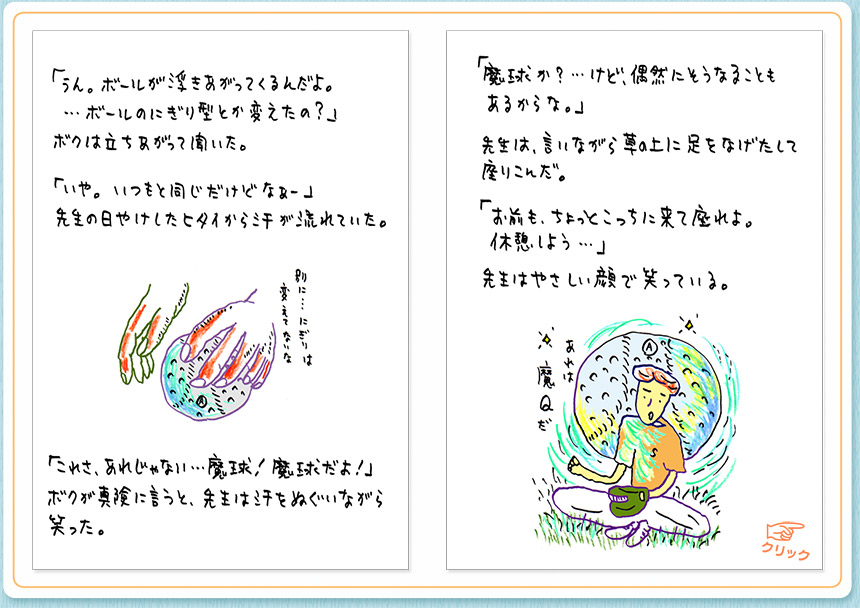 「うん。ボールが浮きあがってくるんだよ。
…ボールのにぎり型とか変えたの？」
ボクは立ちあがって聞いた。
「いや。いつもと同じだけどなぁー」
先生の日やけしたヒタイから汗が流れていた。
別に…にぎりは
変えてないな
Ⓐ
「これさ、あれじゃない…魔球！魔球だよ！」
ボクが真険に言うと、先生は汗をぬぐいながら
笑った。
「魔球か？…けど、偶然にそうなることも
あるからな。」
先生は、言いながら草の上に足をなげだして
座りこんだ。
「お前も、ちょっとこっちに来て座れよ。
休憩しよう…」
先生はやさしい顔で笑っている。
あれは
魔Qだ
Ⓐ
S
クリック